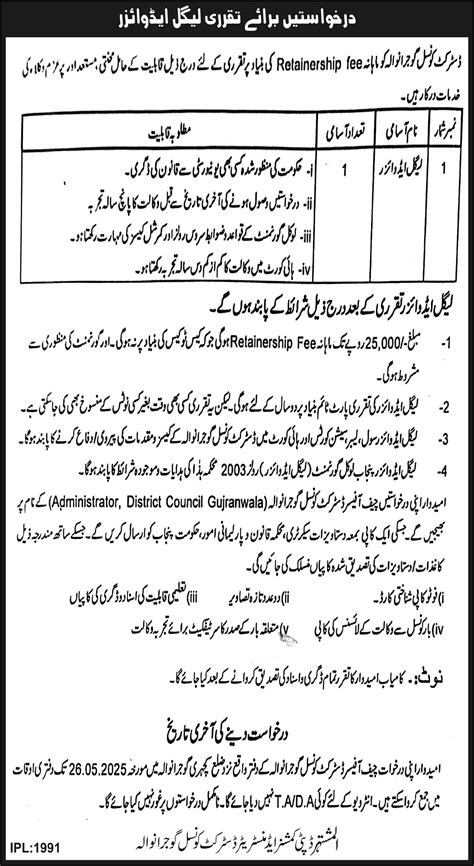 درخواستیں برائے تقرری لیگل ایڈوائزر
ڈسٹرکٹ کونسل گوجرانوالہ کو ماہانہ Retainership fee کی بنیاد پر تقرری کے لئے درج ذیل قابلیت کے حامل محنتی، مستعد اور پرعزم وکلاء کی
خدمات درکار ہیں۔
نمبر شمار نام آسامی تعداد آسامی مطلوبہ قابلیت
1 لیگل ایڈوائزر 1 i- حکومت کی منظور شدہ کسی بھی یونیورسٹی سے قانون کی ڈگری۔
ii- درخواستیں وصول ہونے کی آخری تاریخ سے قبل وکالت کا پانچ سالہ تجربہ
iii- لوکل گورنمنٹ کے قواعد و ضوابط سروس رولز اور کمرشل کیسز کی مہارت رکھتا ہو۔
iv- ہائی کورٹ میں وکالت کا کم از کم دس سالہ تجربہ رکھتا ہو۔
لیگل ایڈوائزر تقرری کے بعد درج ذیل شرائط کے پابند ہوں گے۔
1- مبلغ -/25,000 روپے تک ماہانہ Retainership Fee ہوگی جو کہ کیس ٹو کیس کی بنیاد پر نہ ہوگی۔ اور گورنمنٹ کی منظوری سے
مشروط ہوگی۔
2- لیگل ایڈوائزر کی تقرری پارٹ ٹائم بنیاد پر دو سال کے لئے ہوگی۔ لیکن یہ تقرری کسی بھی وقت بغیر کسی نوٹس کے منسوخ بھی کی جاسکتی ہے۔
3- لیگل ایڈوائزر سول، لیبر، سیشن کورٹس اور ہائی کورٹ میں ڈسٹرکٹ کونسل گوجرانوالہ کے کیسز و مقدمات کی پیروی / دفاع کرنے کا پابند ہوگا۔
4- لیگل ایڈوائزر پنجاب لوکل گورنمنٹ (لیگل ایڈوائزر) رولز 2003 محکمہ ہذا کی ہدایات و موجودہ شرائط کا پابند ہوگا۔
امیدوار اپنی درخواستیں چیف آفیسر ڈسٹرکٹ کونسل گوجرانوالہ (Administrator, District Council Gujranwala) کے نام پر
بھیجیں گے۔ جسکی ایک کاپی بمعہ دستاویزات سیکرٹری، محکمہ قانون و پارلیمانی امور، حکومت پنجاب کو ارسال کریں گے۔ جسکے ساتھ مندرجہ ذیل
کاغذات / دستاویزات کی تصدیق شدہ کاپیاں منسلک کی جائیں گی۔
i) فوٹو کاپی شناختی کارڈ۔ ii) دو عدد تازہ تصاویر iii) تعلیمی قابلیت کی اسناد و ڈگری کی کاپیاں
iv) بار کونسل سے وکالت کے لائسنس کی کاپی v) متعلقہ بار کے صدر کا سرٹیفکیٹ برائے تجربہ وکالت
نوٹ:۔ کامیاب امیدوار کا تقرر تمام ڈگری و اسناد کی تصدیق کروانے کے بعد کیا جائے گا۔
درخواست دینے کی آخری تاریخ
امیدوار اپنی درخواست چیف آفیسر ڈسٹرکٹ کونسل گوجرانوالہ کے دفتر واقع نزد ضلع کچہری گوجرانوالہ میں مورخہ 26.05.2025 تک دفتری اوقات
میں جمع کرواسکتے ہیں۔ انٹرویو کے لئے کوئی T.A/D.A نہیں دیا جائے گا۔ نامکمل درخواستوں پر غور نہیں کیا جائے گا۔
المشتہر ڈپٹی کمشنر / ایڈمنسٹریٹر ڈسٹرکٹ کونسل گوجرانوالہ
IPL:1991